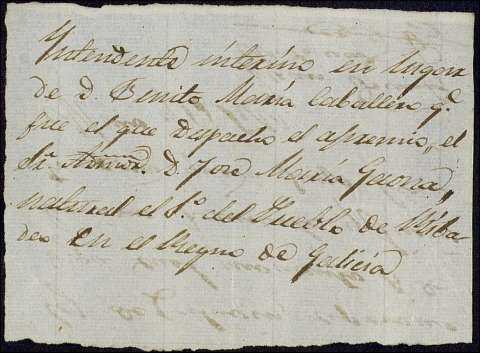 Yntendente interino en lugar
de D. Benito María Caballero q.e
fue el que despacho el apremio,, el
Sr. D. José María Gaona,,
natural el S.o del Pueblo de Riba
deo en el Reyno de Galicia